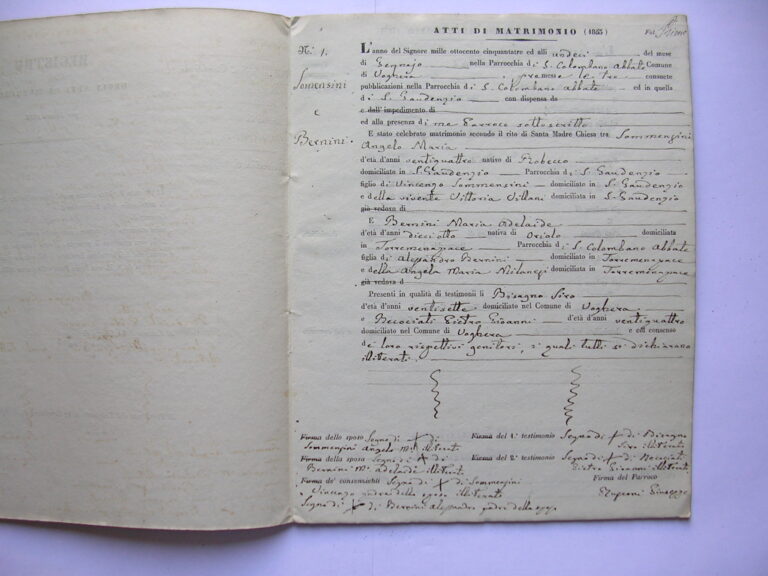 ATTI DI MATRIMONIO (1853)
Fol. Primo
N.° 1.
Sommensini
e
Bernini.
L'anno del Signore mille ottocento cinquantatre ed alli undeci del mese
di Gennajo nella Parrocchia di S. Colombano Abbate Comune
di Voghera , premesse le tre consuete
pubblicazioni nella Parrocchia di S. Colombano Abbate ed in quella
di S. Gaudenzio con dispensa da
e dall'impedimento di
ed alla presenza di me Parroco sottoscritto
E stato celebrato matrimonio secondo il rito di Santa Madre Chiesa tra Sommensini
Angelo Maria
d'età d'anni ventiquattro nativo di Robecco
domiciliato in S. Gaudenzio Parrocchia di S. Gaudenzio
figlio di Vincenzo Sommensini domiciliato in S. Gaudenzio
e della vivente Vittoria Villani domiciliata in S. Gaudenzio
già vedovo di
E Bernini Maria Adelaide
d'età d'anni dieciotto nativa di Oriolo domiciliata
in Torremenapace Parrocchia di S. Colombano Abbate
figlia di Alessandro Bernini domiciliato in Torremenapace
e della Angela Maria Milanesi domiciliata in Torremenapace
già vedova d
Presenti in qualità di testimonii li Bisagno Siro
d'età d'anni ventisette domiciliato nel Comune di Voghera
e Pietro Gioanni d'età d'anni ventiquattro
domiciliato nel Comune di Voghera e coll consenso
de' loro rispettivi genitori, i quali tutti si dichiarano
illiterati.
Firma dello sposo Segno di X di
Sommensini Angelo M.a illiterato
Firma del 1.° testimonio Segno di X di Bisagno
Siro illiterato
Firma della sposa Segno di X di
Bernini M.a Adelaide illiterata
Firma del 2.° testimonio Segno di X di
Pietro Gioanni illiterato
Firma de' consenzienti Segno di X di Sommensini
Vincenzo padre dello sposo illiterato
Segno di X di Bernini Alessandro padre della sposa
Firma del Parroco
Giuseppe